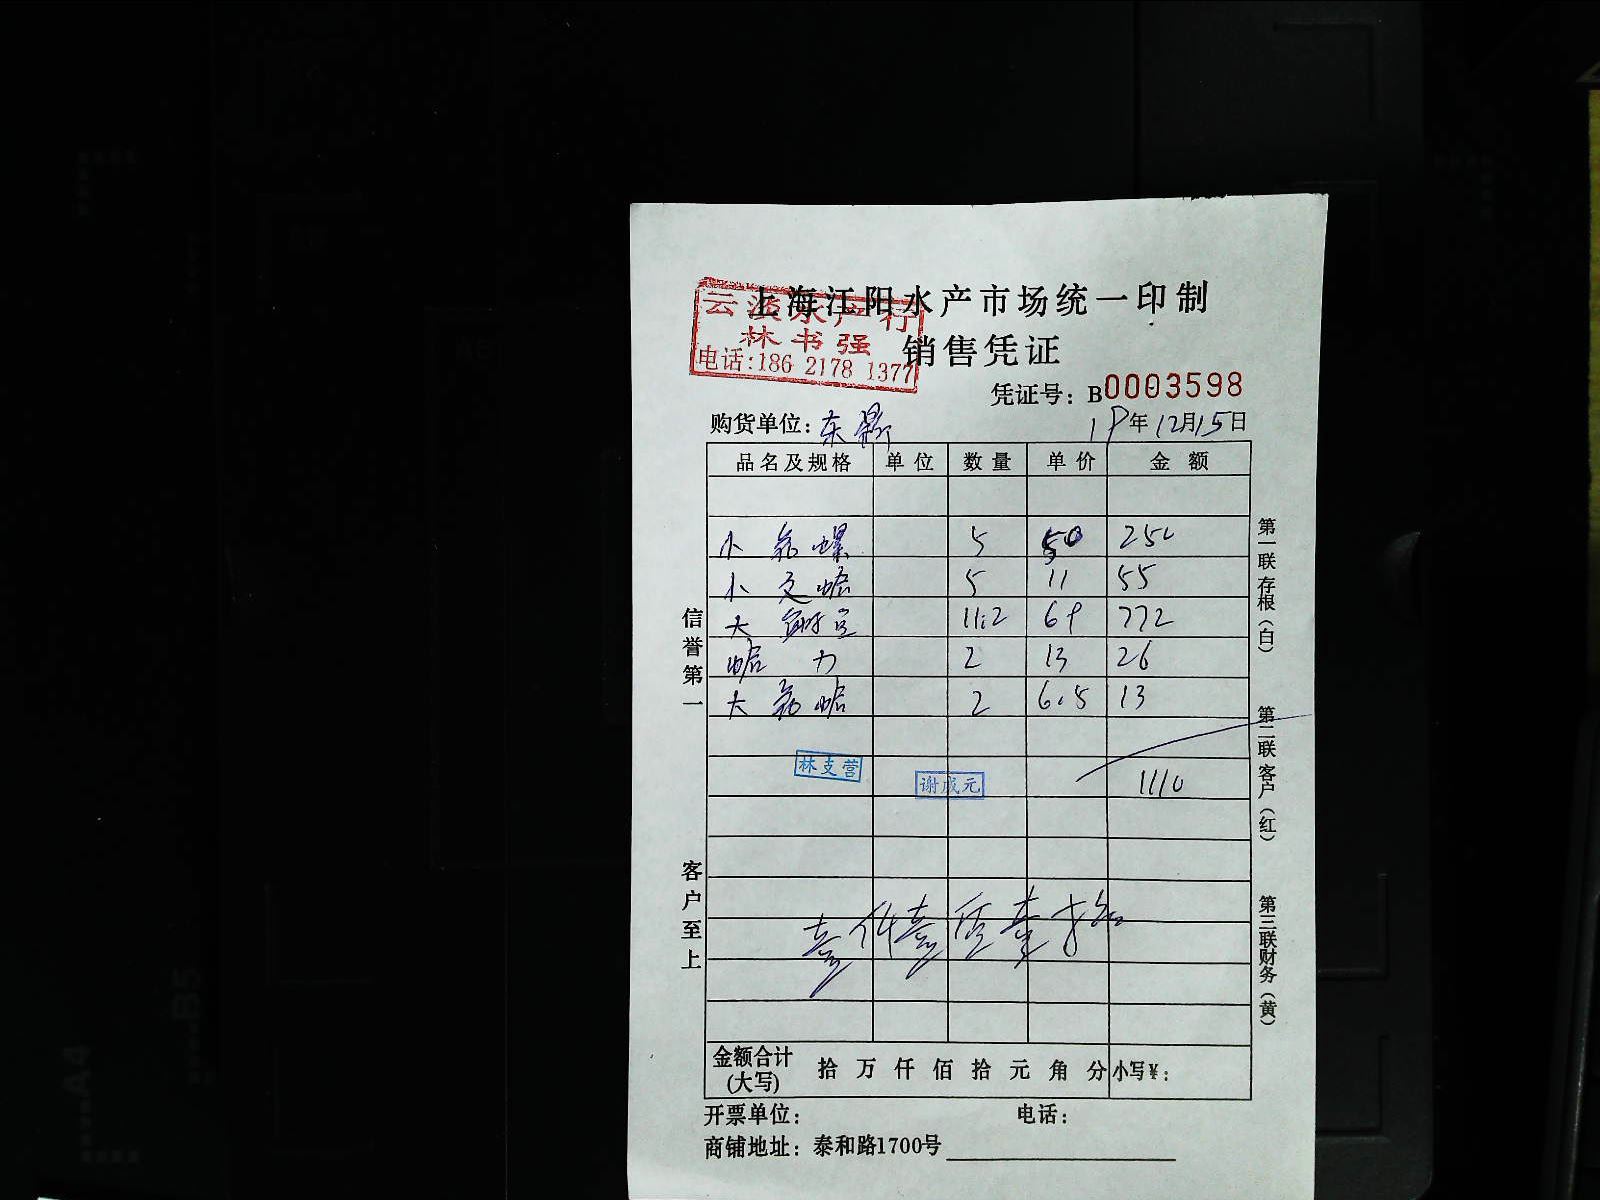 上海江阳水产市场统一印制
云淡水产行
林书强
电话:186 2178 1377
销售凭证
凭证号: B0003598
购货单位: 东
19年12月15日
品名及规格 单位 数量 单价 金额
小 螺 5 50 250
小 5 11 55
大 11.2 69 772
2 13 26
大 2 6.5 13
林支营
谢成元 1110
金额合计(大写) 拾 万 仟 佰 拾 元 角 分 小写¥:
开票单位: 电话:
商铺地址: 泰和路1700号
信誉第一
客户至上
第一联存根(白)
第二联客户(红)
第三联财务(黄)
A4
B5